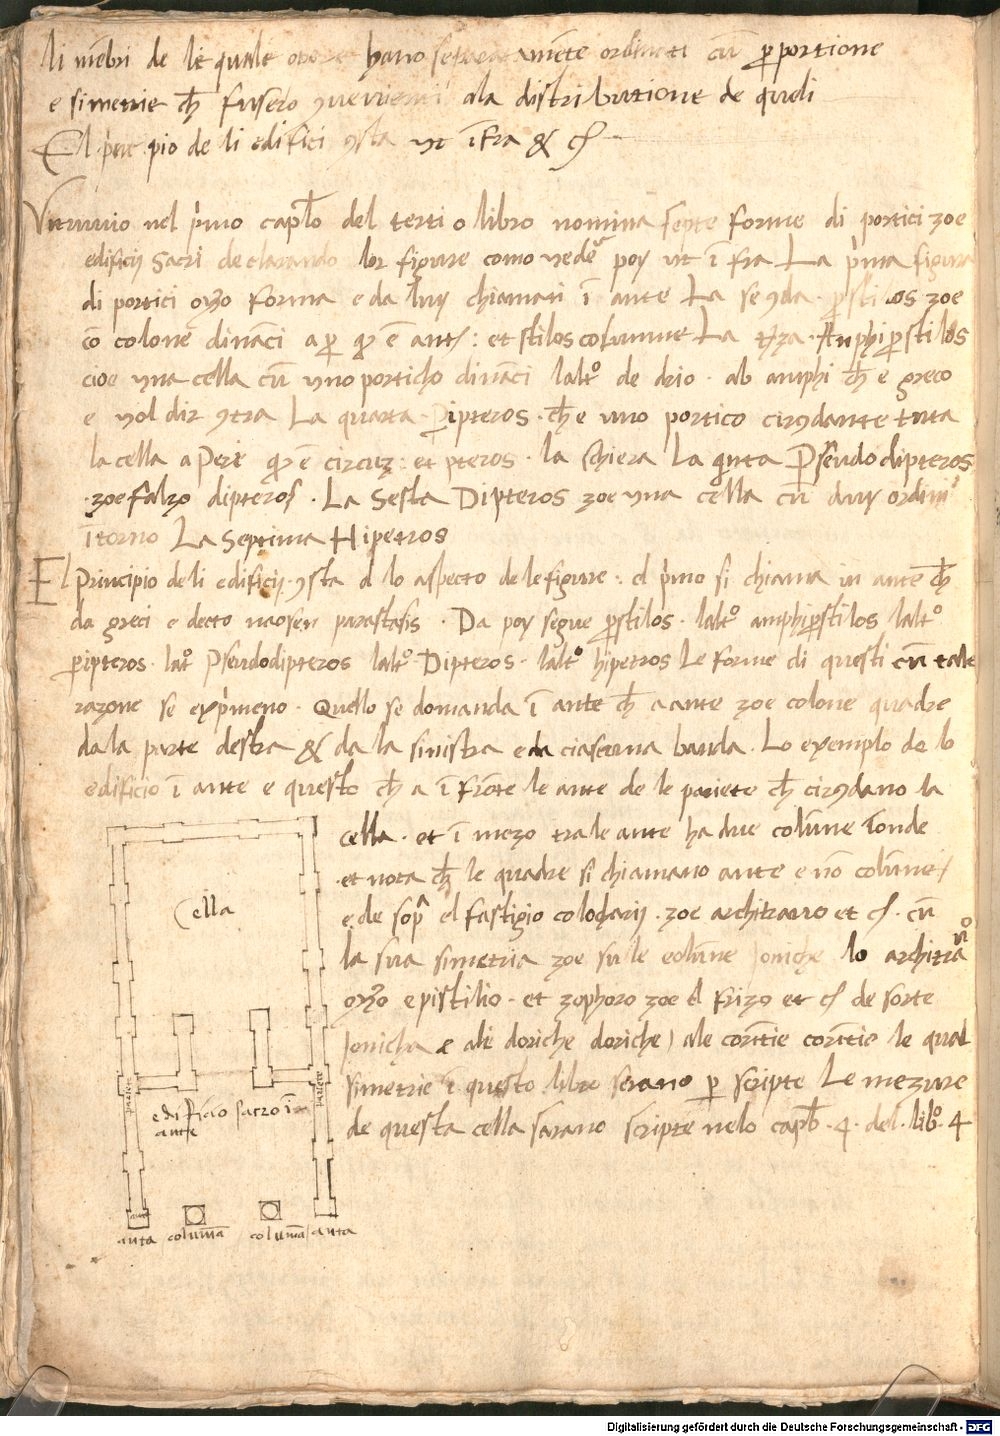 li mēbri de le quale opere hano separatamēte ordineti cū ꝑportione
e simetrie ch̄ fusero ꝯuenienti ala distributione de queli
El pricipio de li edifici ꝯsta ut ī fra & cͣ
Vitruuio nel p̍mo capl̄o del tertio libro nomina septe forme di portici zoe
edificij sacri declarando lor figure como vederͤ poy ut ī fra La p̍ma figura
di portici oꝟo forma e da luy chiamati ī ante La seꝯda ꝓstilos zoe
cō colone dināci a ꝑ q̄ ē ant: et stilos columne La t̍za Anphiꝓstilos
cioe una cella cū uno porticho dināci laltᵒ de drio . ab amphi ch̄ e greco
e uol dir ꝯtra La quarta . Pipteros . ch̄ e uno portico cirꝯdante tuta
la cella a Peri q̄ ē circuꝫ : et pteros . la schiera La q̍nta Psēudodipteros
. zoe falzo dipteros . La Sesta Dipteros zoe una cella cū duy ordini
ītorno La Septima Hipetros
El Principio de li edificij . ꝯsta d lo aspecto de le figure : el p̍mo si chiama in ante ch̄
da greci e decto naosen parastasis . Da poy segue ꝓstilos . laltᵒ amphiꝓstilos laltᵒ
ꝑipteros . latᵒ Pseudodipteros laltᵒ Dipteros . laltᵒ hipetros Le forme di questi cū tale
razone se exp̍meno . Quello se domanda ī ante ch̄ a ante zoe colone quadre
da la parte destra & da la sinistra e da ciascuna banda . Lo exemplo de lo
edificio ī ante e questo ch̄ a ī frōte le ante de le pariete ch̄ cirꝯdano la
cella . et ī mezo tra le ante ha due colūne tonde
. et nota ch̄ le quadre si chiamano ante e nō colūne /
e de sopᵃ el fastigio colocharij . zoe architrauo et cͣ . cū
la sua simetria zoe su le colūne Ioniche lo architraᵘᵒ
oꝟo epistilio . et zophoro zoe el frizo et cͣ de sorte
Ionicha e ale doriche doriche / ale corītie corītie le qual
simetrie ī questo libro serano ꝑ scripte Le mezure
de questa cella sarano scripte nelo capl̄o . 4 . del . lib̄ᵒ . 4
Cella
pariete
pariete
edificio sacro ī
ante
anta
anta columā columā anta
Digitalisierung gefördert durch die Deutsche Forschungsgemeinschaft - DFG